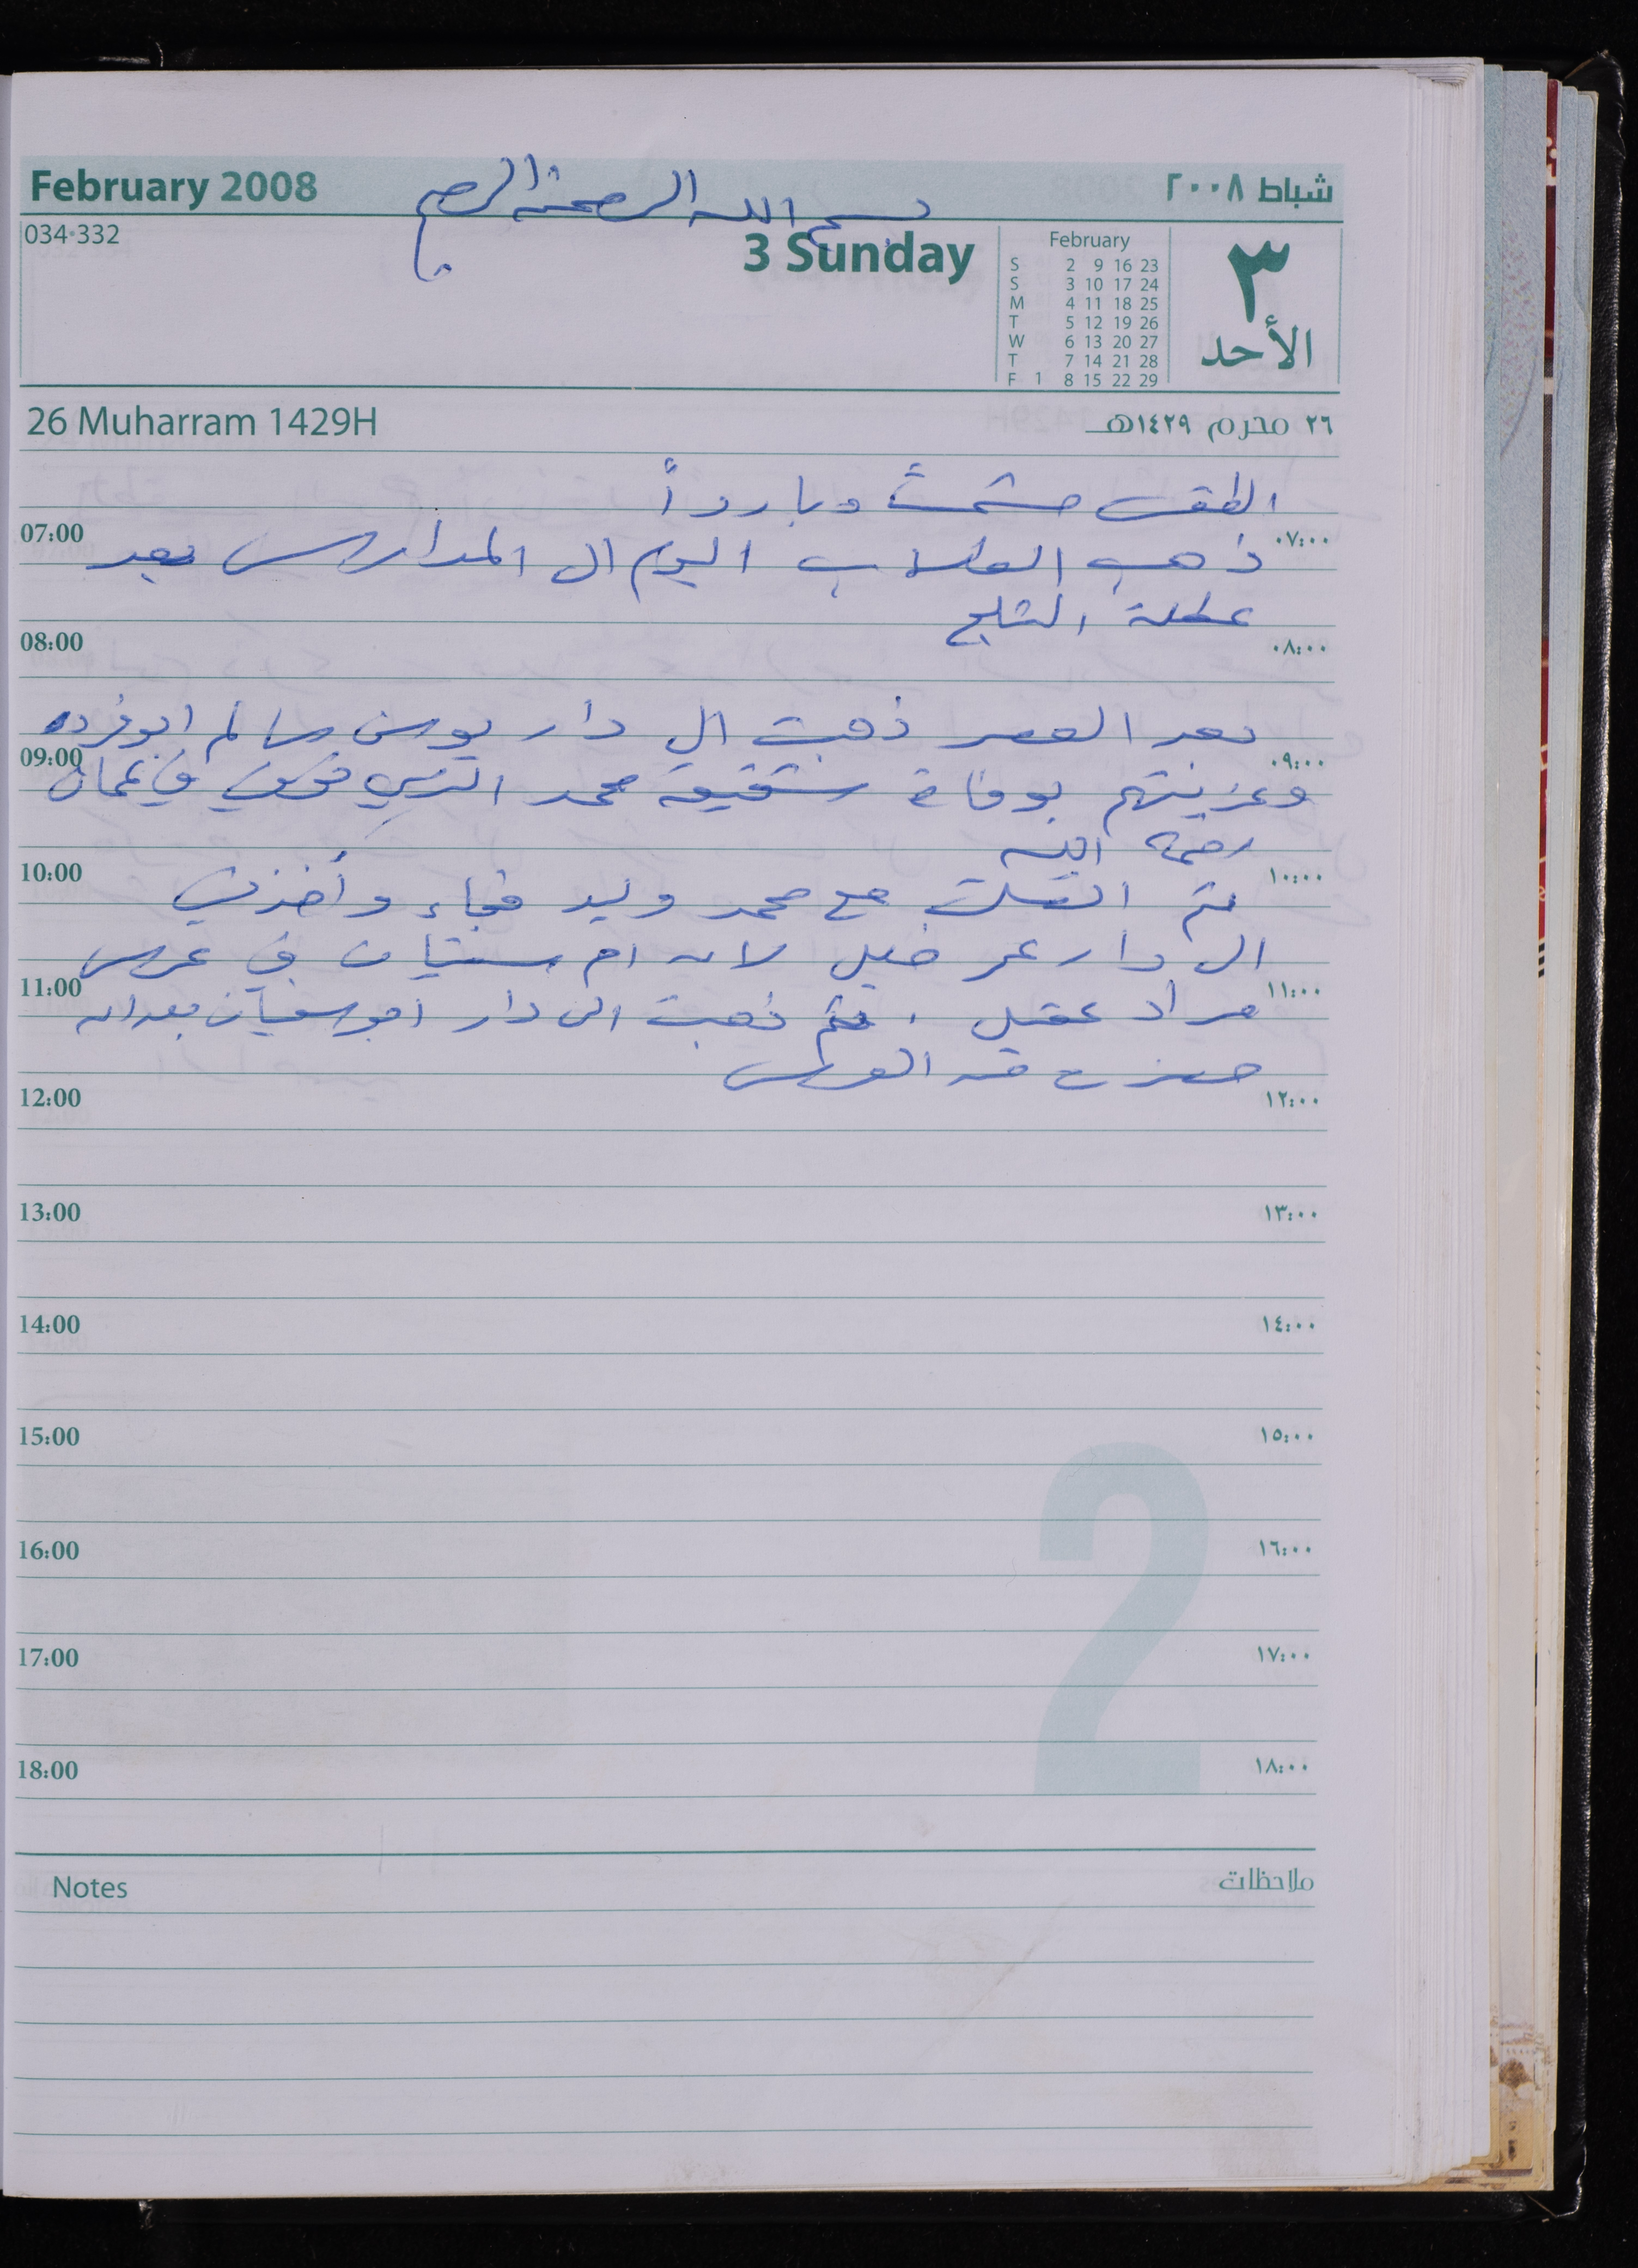 February 2008
بسم الله الرحمن الرحيم
شباط ٢٠٠٨
034-332
3 Sunday
February
S 2 9 16 23
S 3 10 17 24
M 4 11 18 25
T 5 12 19 26
W 6 13 20 27
T 7 14 21 28
F 1 8 15 22 29
٣
الأحد
26 Muharram 1429H
٢٦ محرم ١٤٢٩هـ
الطقس مشمساً وبارداً
07:00 ٠٧:٠٠
ذهب الطلاب اليوم الى المدارس بعد
عطلة الثلج
08:00 ٠٨:٠٠
بعد العصر ذهبت الى دار يوسف سالم ابو فرده
09:00 ٠٩:٠٠
وعزيتهم بوفاة شقيقه محمد الذي توفى في عمان
رحمه الله
10:00 ١٠:٠٠
ثم اتصلت مع محمد وليد فجاء وأخذني
الى دار عمر خليل لان ام سفيان في عرس
11:00 ١١:٠٠
مراد عقيل . ثم ذهبت الى دار ابو سفيان بعد ان
حضرت من العرس
12:00 ١٢:٠٠
13:00 ١٣:٠٠
14:00 ١٤:٠٠
15:00 ١٥:٠٠
16:00 ١٦:٠٠
17:00 ١٧:٠٠
18:00 ١٨:٠٠
2
Notes
ملاحظات